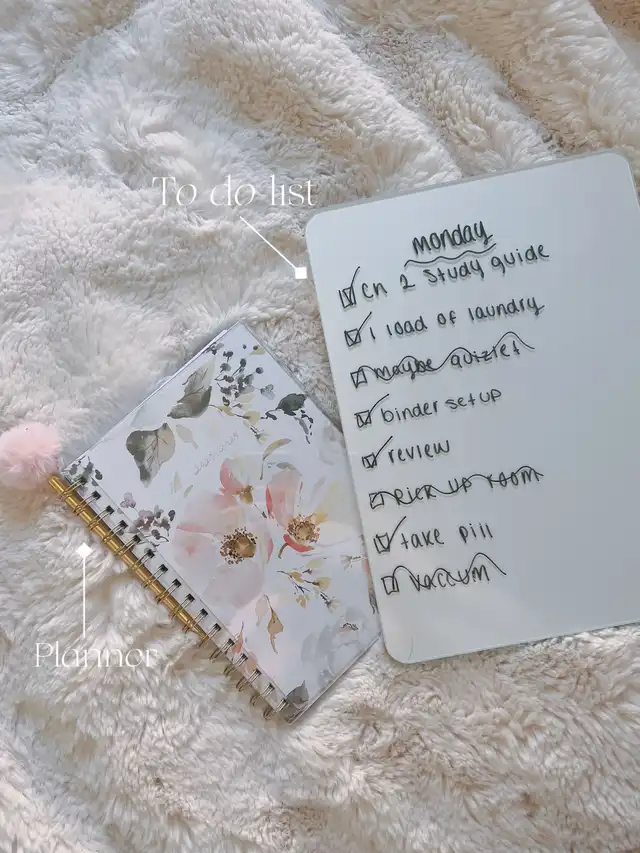 To do list
monday
Ch 2 study guide
1 load of laundry
maybe quizlet
binder setup
review
Pick up room
take pill
vaccum
Planner